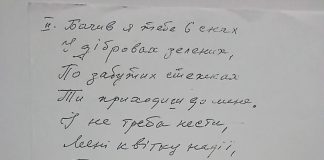 II. Бачив я тебе в снах
У дібровах зелених,
По забутих стежках
Ти приходиш до мене.
І не треба нести,
Мені квітку надії,